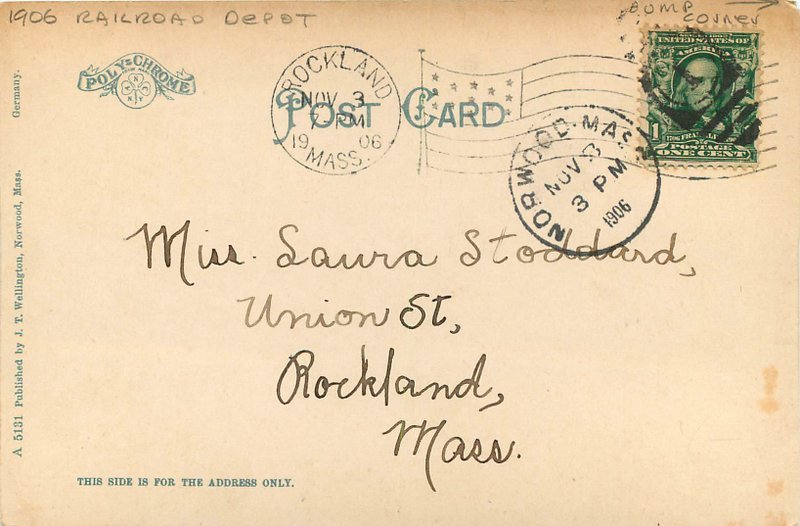 1906 RAILROAD DEPOT
BUMP
CORNER
POLY-CHROME
ROCKLAND
NOV 3
7-PM
1906
MASS.
POST CARD
NORWOOD, MASS.
NOV 3
3 PM
1906
UNITED STATES OF
AMERICA
1
POSTAGE
ONE CENT
Miss. Laura Stoddard,
Union St,
Rockland,
Mass.
THIS SIDE IS FOR THE ADDRESS ONLY.
A 5131 Published by J. T. Wellington, Norwood, Mass.
Germany.